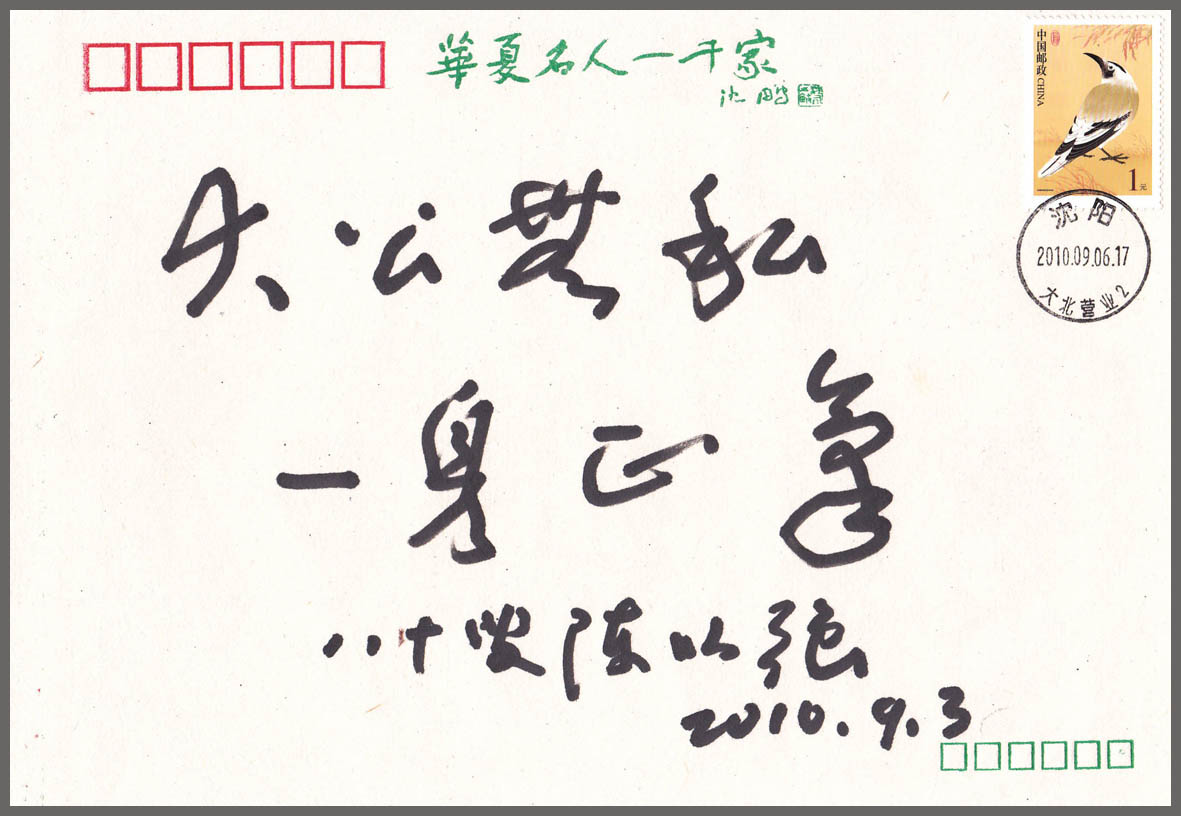 華夏名人一千家
沈鹏
中国邮政 CHINA
1元
沈阳
2010.09.06.17
大北营业2
大公無私
一身正氣
八十叟陈以
2010.9.3